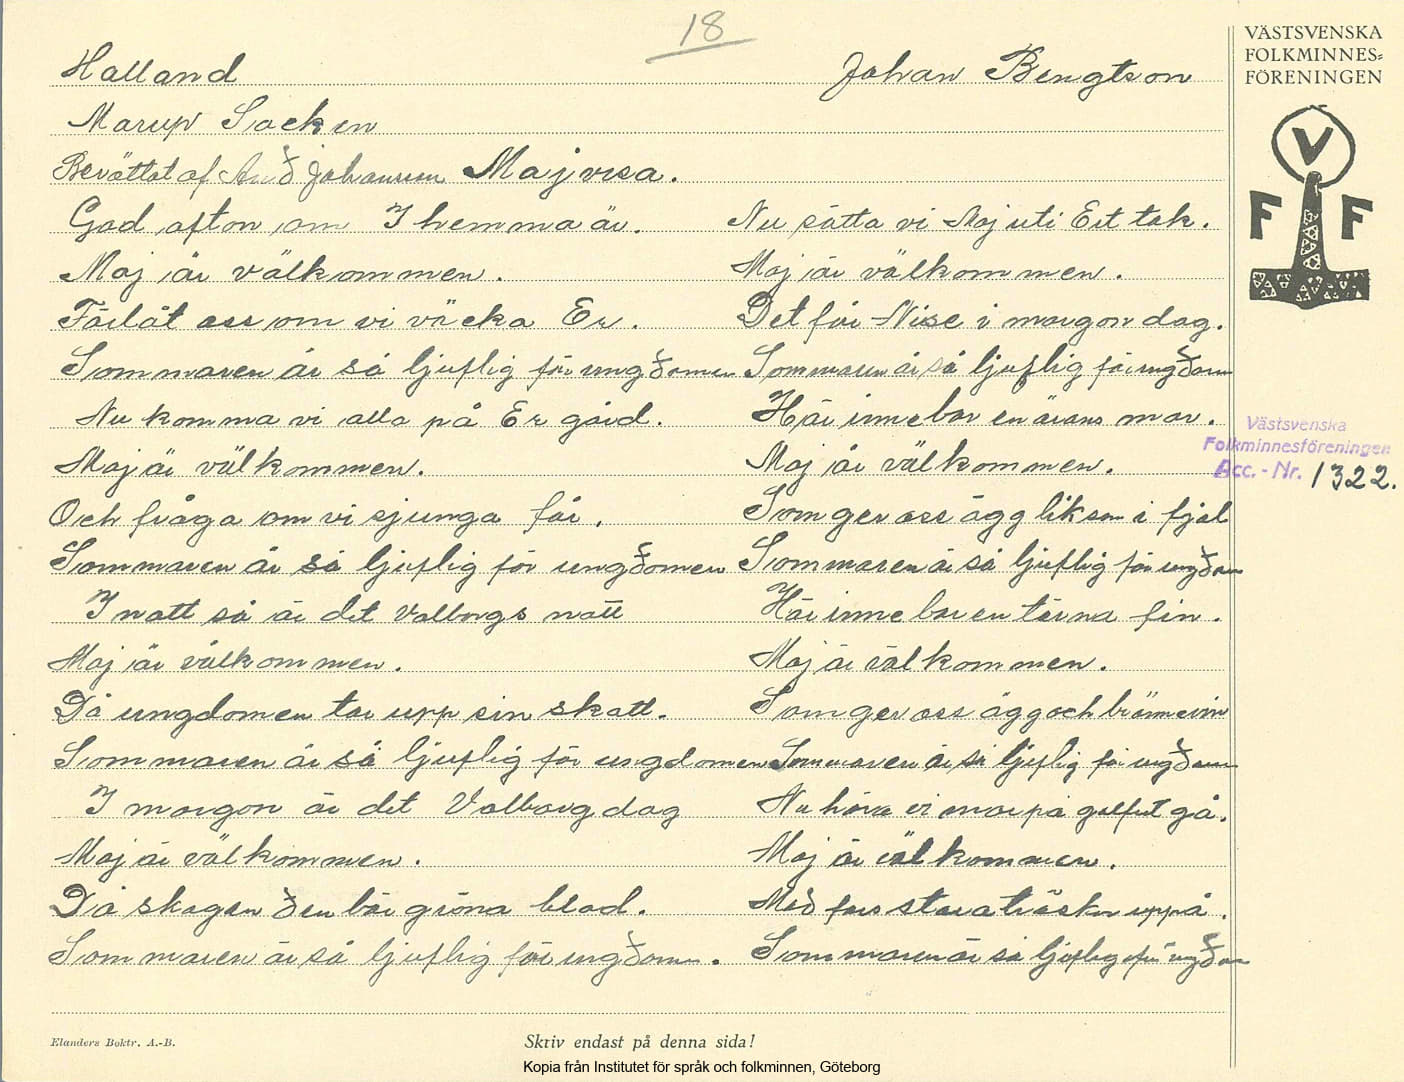 18
Halland
Johan Bengtson
Marup Socken
Berättat af And Johansson Majvisa.
God afton om I hemma är.
Maj är välkommen.
Förlåt oss om vi väcka Er.
Sommaren är så ljuflig för ungdomen
Nu komma vi alla på Er gård.
Maj är välkommen.
Och fråga om vi sjunga får.
Sommaren är så ljuflig för ungdomen
I natt så är det Valborgs natt
Maj är välkommen.
Då ungdomen tar upp sin skatt.
Sommaren är så ljuflig för ungdomen
I morgon är det Valborg dag
Maj är välkommen.
Då skogen den bär gröna blad.
Sommaren är så ljuflig för ungdomen.
Nu sätta vi Maj uti Ert tak.
Maj är välkommen.
Det får Nisse i morgon dag.
Sommaren är så ljuflig för ungdom
Här inne bor en ärans mor.
Maj är välkommen.
Som ger oss ägg liksom i fjol
Sommaren är så ljuflig för ungdom
Här inne bor en tärna fin.
Maj är välkommen.
Som ger oss ägg och brännevin
Sommaren är så ljuflig för ungdom
Nu höra vi mor på golfvet gå.
Maj är välkommen.
Med fars stora träskor uppå.
Sommaren är så ljuflig för ungdom
VÄSTSVENSKA
FOLKMINNES=
FÖRENINGEN
V
F F
Västsvenska
Folkminnesföreningen
Acc.-Nr. 1322.
Elanders Boktr. A.-B.
Skriv endast på denna sida!
Kopia från Institutet för språk och folkminnen, Göteborg